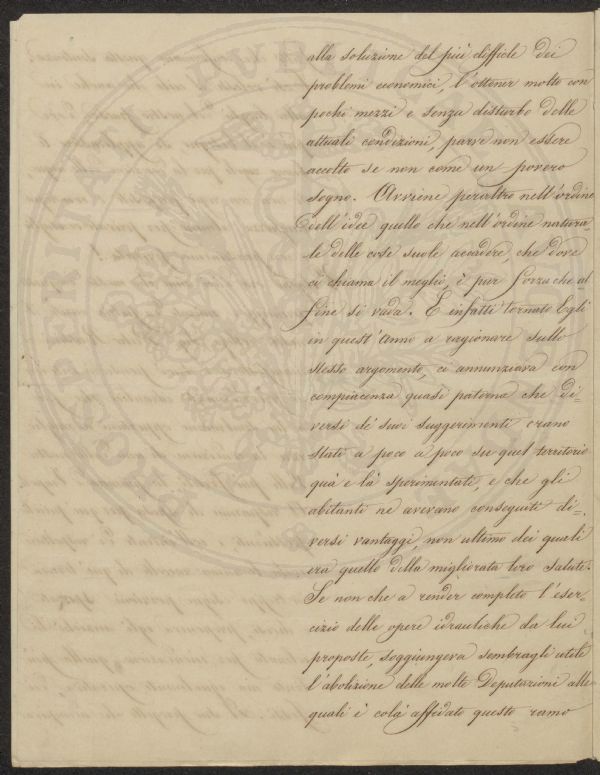 alla soluzione del più difficile dei
problemi economici, l'ottener molto con
pochi mezzi e senza disturbo delle
attuali condizioni, parve non essere
accolto se non come un povero
sogno. Avviene peraltro nell'ordine
dell'idee quello che nell'ordine natura=
le delle cose suole accadere, che dove
ci chiama il meglio, è pur forza che al
fine si vada. E infatti tornato Egli
in quest'anno a ragionare sullo
stesso argomento, ci annunziava con
compiacenza quasi paterna che di=
versi de' suoi suggerimenti erano
stati a poco a poco su quel territorio
quà e là sperimentati, e che gli
abitanti ne avevano conseguiti di=
versi vantaggi, non ultimo dei quali
era quello della migliorata loro salute.
Se non che a render completo l'eser=
cizio delle opere idrauliche da lui
proposte, soggiungeva sembragli utile
l'abolizione delle molte Deputazioni alle
quali è colà affidato questo ramo